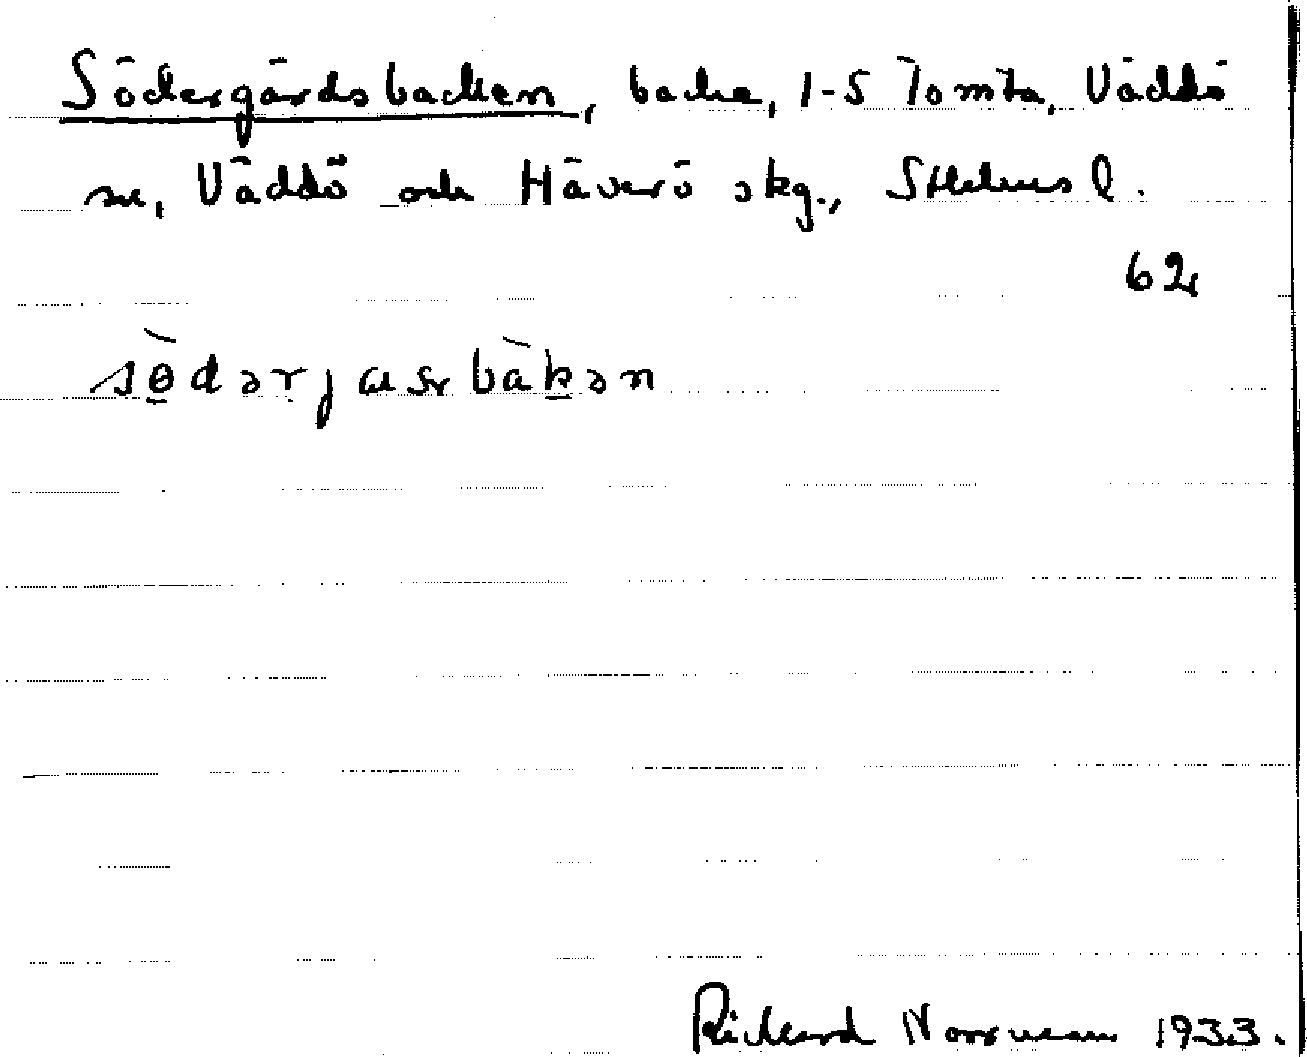 Södergårdsbacken, backe, 1-5 Tomta, Väddö
sn, Väddö och Häverö skg., Sthlms l.
62
södərjɑsrbàkən
Richard Norrman 1933.